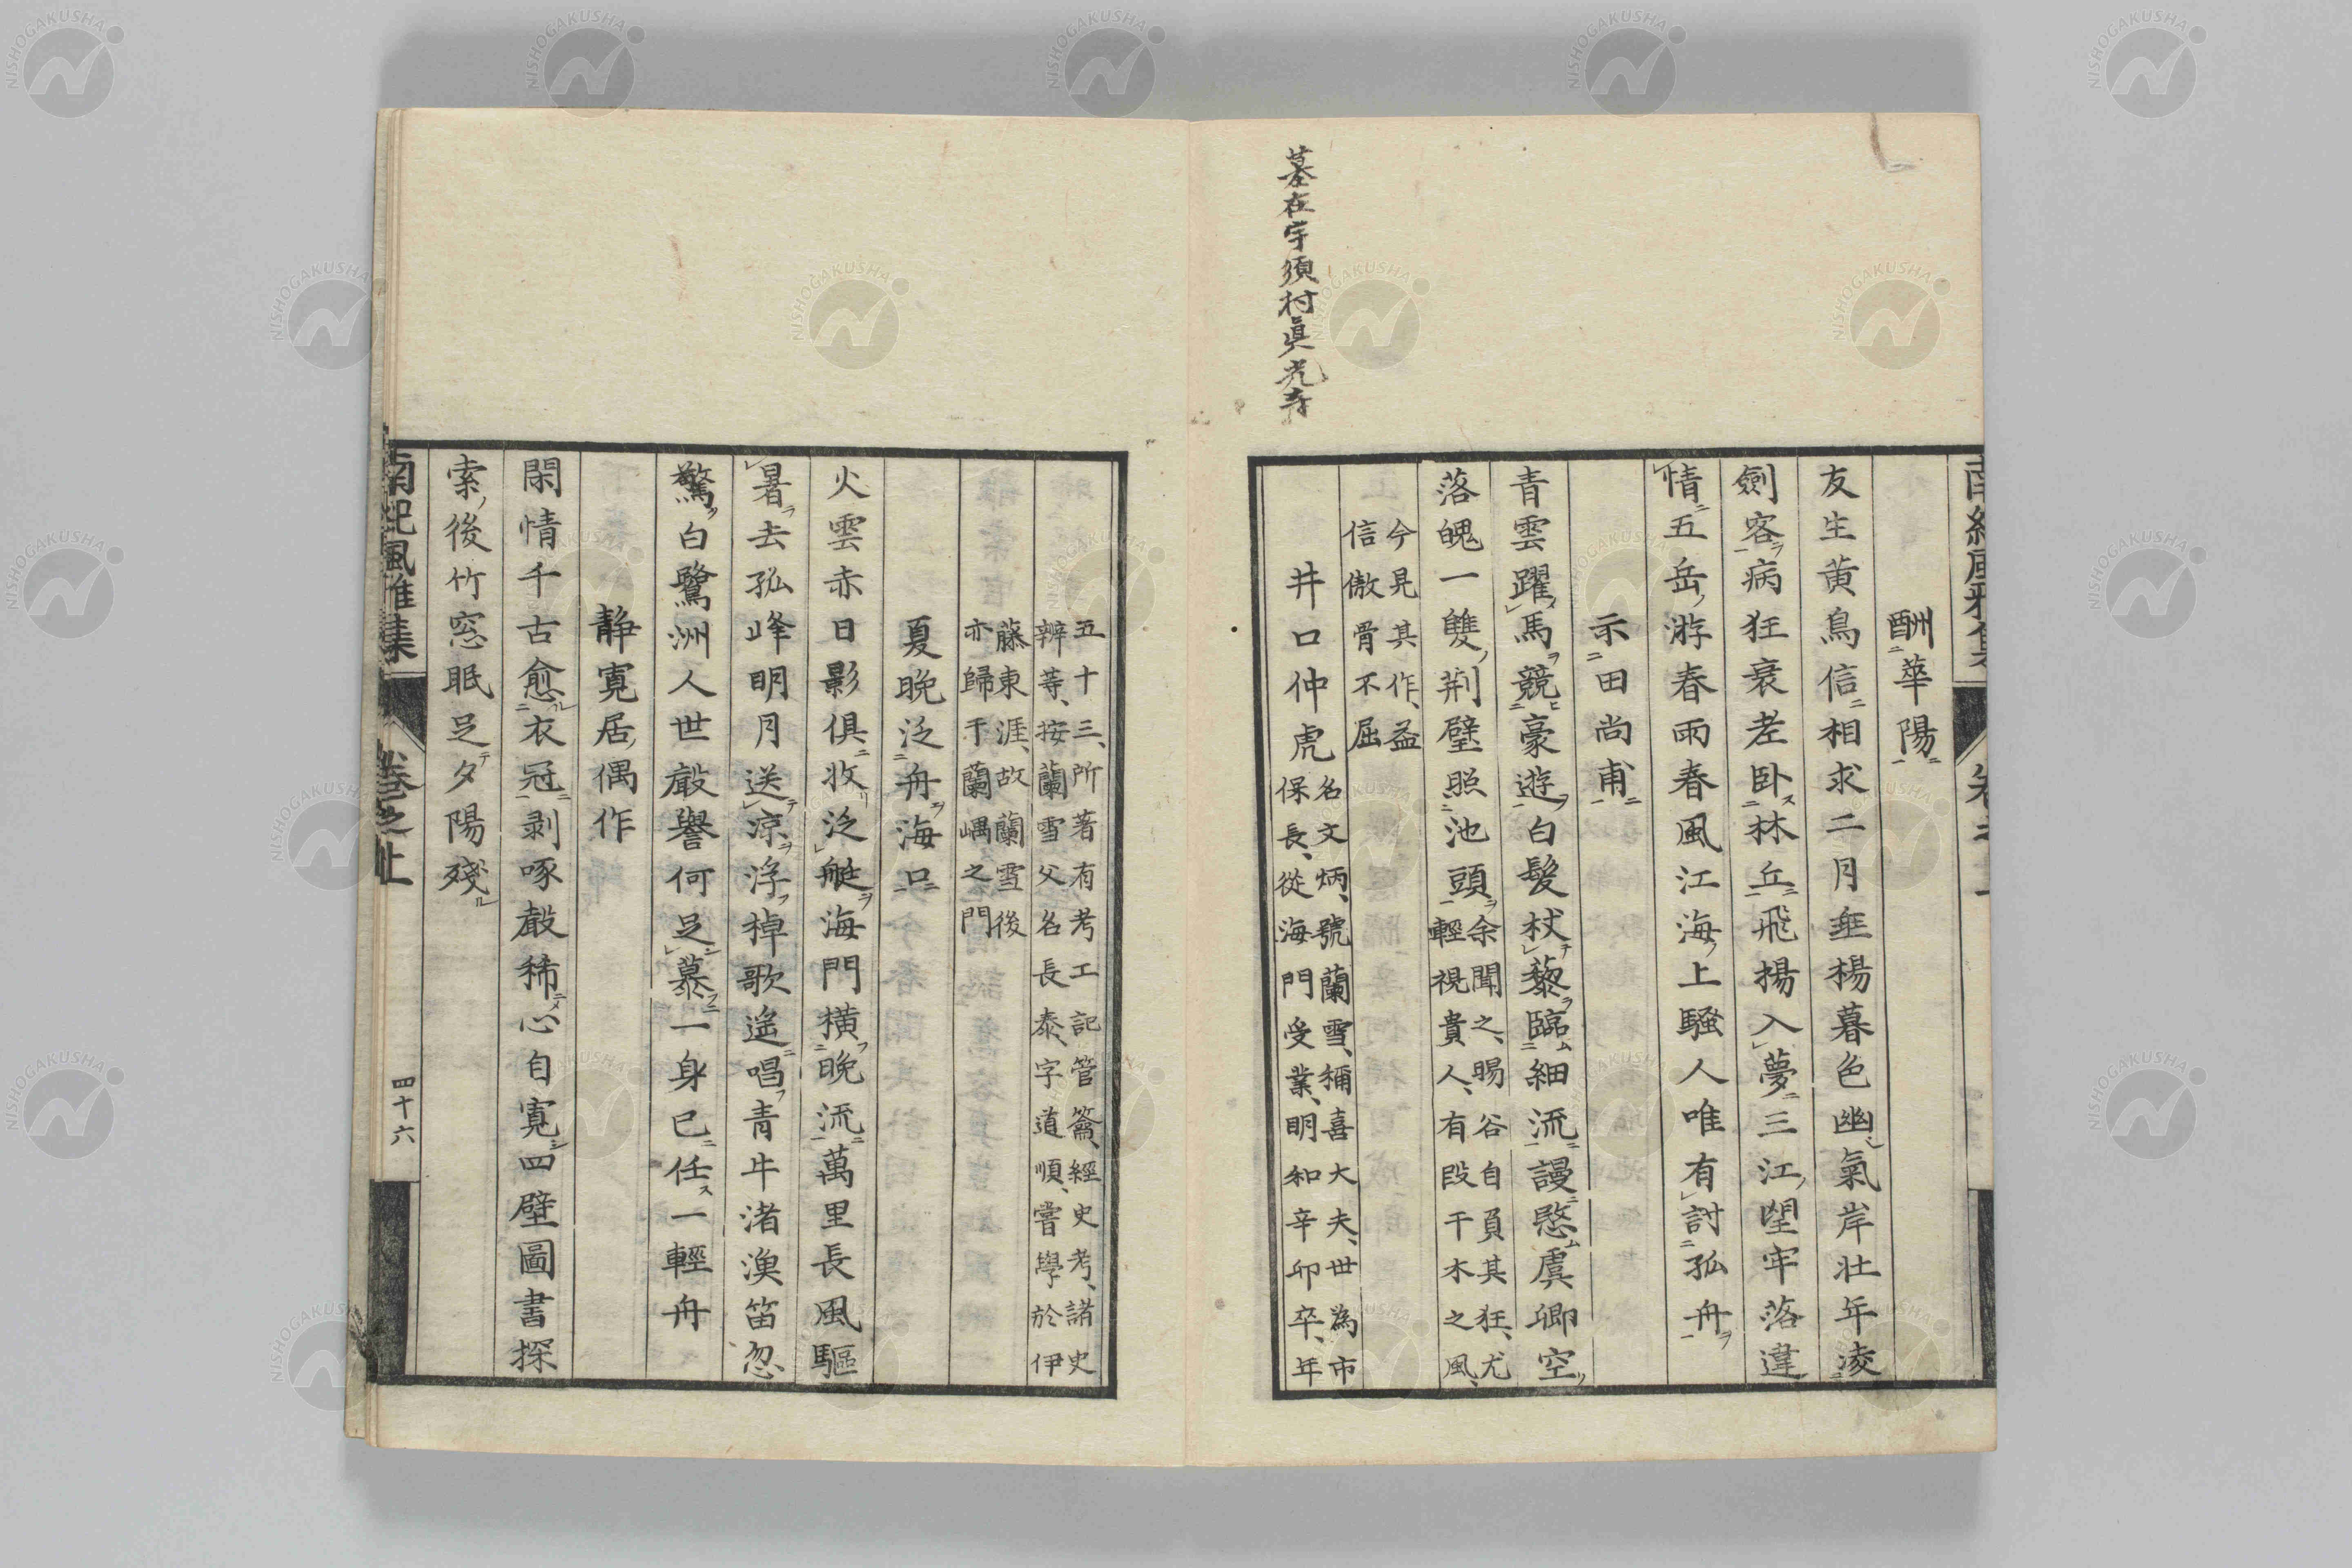 墓在宇須村眞光寺
酬華陽
友生黄鳥信相求二月垂楊暮色幽氣岸壮年凌
劍客病狂衰老卧林丘飛揚入夢三江望牢落違
情五岳游春雨春風江海上騷人唯有討孤舟
示田尚甫
青雲躍馬競豪遊白髮杖藜臨細流謾愍虞卿空
落魄一雙荆璧照池頭
余聞之賜谷自負其狂、尤
輕視貴人、有段干木之風、
今見其作、益
信傲骨不屈
井口仲虎
名文炳、號蘭雪、稱喜大夫、世為市
保長、從海門受業、明和辛卯卒、年
五十三、所著有考工記管籥、經史考、諸史
辨等、按蘭雪父名長泰、字道順、嘗學於伊
藤東涯、故蘭雪後
亦歸于蘭嵎之門
夏晚泛舟海口
火雲赤日影俱收泛艇海門橫晚流萬里長風驅
暑去孤峰明月送凉浮棹歌遙唱青牛渚漁笛忽
驚白鷺洲人世聲譽何足慕一身已任一輕舟
静寬居偶作
閑情千古愈衣冠剥啄聲稀心自寬四壁圖書探
索後竹窓眠足夕陽殘
南紀風雅集
卷之上
四十六